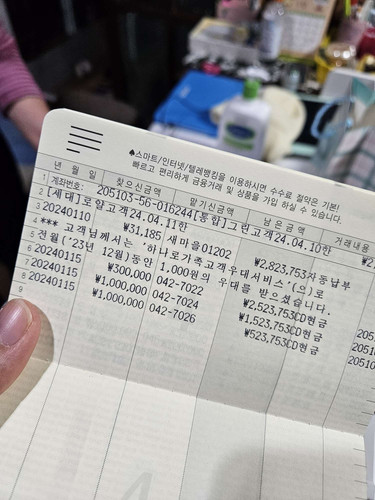 ♠스마트/인터넷/텔레뱅킹을 이용하시면 수수료 절약은 기본!
빠르고 편리하게 금융거래 및 상품을 가입 하실 수 있습니다.
년 월 일 찾으신금액 맡기신금액 남은금액 거래내용
1 계좌번호: 205103-56-016244[통합]그린고객24.04.10한
2 [세대]로얄고객24.04.11한
3 20240110 ₩31,185 새마을01202 ₩2,823,753자동납부
4 *** 고객님께서는 '하나로가족고객우대서비스'(으)로
5 전월('23년 12월)동안 1,000원의 우대를 받으셨습니다.
6 20240115 ₩300,000 042-7022 ₩2,523,753CD현금
7 20240115 ₩1,000,000 042-7024 ₩1,523,753CD현금
8 20240115 ₩1,000,000 042-7026 ₩523,753CD현금
9